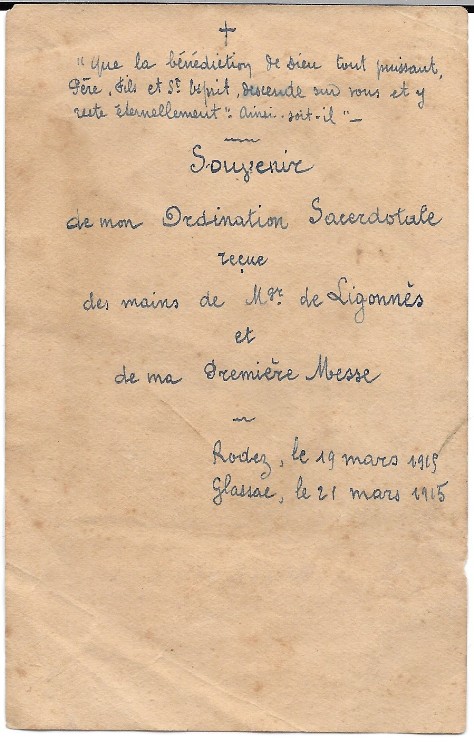 "Que la bénédiction de Dieu tout puissant,
Père, Fils et St Esprit, descende sur vous et y
reste éternellement". Ainsi-soit-il"-
Souvenir
de mon Ordination Sacerdotale
reçue
des mains de Mgr. de Ligonnès
et
de ma Première Messe
Rodez, le 19 mars 1915
Glassac, le 21 mars 1915